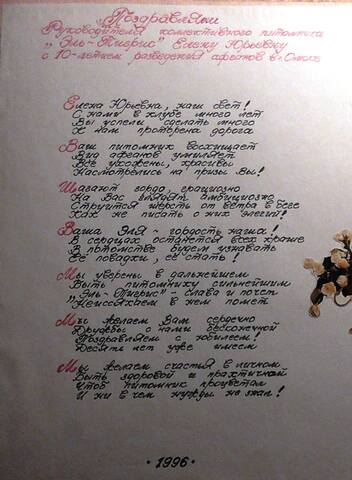 Поздравляем
Руководителя коллективного питомника
„Эль-Тигрис" Елену Юрьевну
с 10-летием разведения афганов в г. Омске
Елена Юрьевна, наш свет!
С нами в клубе много лет
Вы успели сделать много
К нам проторена дорога
Ваш питомник восхищает
Вид афганов умиляет
Все ухожены, красивы
Насмотрелись на призы Вы!
Шагают гордо, грациозно
На Вас глядят амбициозно
Струится шерсть от ветра в беге
Как же писать о них элегий!
Ваша Эля - гордость наша!
В сердцах останется всех краше
В потомстве будем узнавать
Её повадки, её стать!
Мы уверены в дальнейшем
Быть питомнику сильнейшим
„Эль-Тигрис" - слава и почёт
в нём помёт
Мы желаем Вам сердечно
Дружбы с нами бесконечной
Поздравляем с юбилеем!
Десять лет уже имеем
Мы желаем счастья в личном
Быть здоровой и практичной
Чтоб питомник процветал
И ни в чем нужды не знал!
·1996·